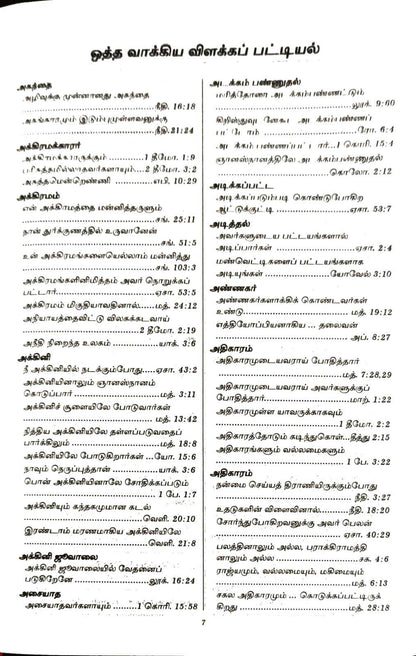 ஒத்த வாக்கிய விளக்கப் பட்டியல்
அகந்தை
அழிவுக்கு முன்னானது அகந்தை
நீதி. 16:18
அகங்காரமும் இடும்புமுள்ளவனுக்கு
நீதி.21:24
அக்கிரமக்காரர்
அக்கிரமக்காரருக்கும் 1 தீமோ. 1:9
பரிசுத்தமில்லாதவர்களாயும் 2 தீமோ. 3:2
அசுத்தமென்றெண்ணி எபி. 10:29
அக்கிரமம்
என் அக்கிரமத்தை மன்னித்தருளும்
சங். 25:11
நான் துர்க்குணத்தில் உருவானேன்
சங். 51:5
உன் அக்கிரமங்களையெல்லாம் மன்னித்து
சங். 103:3
அக்கிரமங்களினிமித்தம் அவர் நொறுக்கப்
பட்டார் ஏசா. 53:5
அக்கிரமம் மிகுதியாவதினால் மத். 24:12
அநியாயத்தைவிட்டு விலகக்கடவாய்
2 தீமோ. 2:19
அநீதி நிறைந்த உலகம் யாக். 3:6
அக்கினி
நீ அக்கினியில் நடக்கும்போது ஏசா. 43:2
அக்கினியினாலும் ஞானஸ்நானம்
கொடுப்பார் மத். 3:11
அக்கினிச் சூளையிலே போடுவார்கள்
மத். 13:42
நித்திய அக்கினியிலே தள்ளப்படுவதைப்
பார்க்கிலும் மத். 18:8
அக்கினியிலே போடுகிறார்கள் யோ. 15:6
நாவும் நெருப்புத்தான் யாக். 3:6
பொன் அக்கினியினாலே சோதிக்கப்படும்
1 பே. 1:7
அக்கினியும் கந்தகமுமான கடல்
வெளி. 20:10
இரண்டாம் மரணமாகிய அக்கினியிலே
வெளி. 21:8
அக்கினி ஜுவாலை
அக்கினி ஜுவாலையில் வேதனைப்
படுகிறேனே லூக். 16:24
அசையாத
அசையாதவர்களாயும் 1 கொரி. 15:58
அடக்கம் பண்ணுதல்
மரித்தோரை அடக்கம்பண்ணட்டும்
லூக். 9:60
கிறிஸ்துவுடனேகூட அடக்கம்பண்ணப்
பட்டோம் ரோ. 6:4
அடக்கம்பண்ணப்பட்டார் 1 கொரி. 15:4
ஞானஸ்நானத்திலே அடக்கம்பண்ணுதல்
கொலோ. 2:12
அடிக்கப்பட்ட
அடிக்கப்படும்படி கொண்டுபோகிற
ஆட்டுக்குட்டி ஏசா. 53:7
அடித்தல்
அவர்களுடைய பட்டயங்களால்
அடிப்பார்கள் ஏசா. 2:4
மண்வெட்டிகளைப் பட்டயங்களாக
அடியுங்கள் யோவேல் 3:10
அண்ணகர்
அண்ணகர்களாக்கிக் கொண்டவர்கள்
உண்டு மத். 19:12
எத்தியோப்பியனாகிய ... தலைவன்
அப். 8:27
அதிகாரம்
அதிகாரமுடையவராய் போதித்தார்
மத். 7:28,29
அதிகாரமுடையவராய் அவர்களுக்குப்
போதித்தார் மாற். 1:22
அதிகாரமுள்ள யாவருக்காகவும்
1 தீமோ. 2:2
அதிகாரத்தோடும் கடிந்துகொள்...தீத்து 2:15
அதிகாரங்களும் வல்லமைகளும்
1 பே. 3:22
அதிகாரம்
நன்மை செய்யத் திராணியிருக்கும்போது
நீதி. 3:27
உதடுகளின் விளைவினால் நீதி. 18:20
சோர்ந்துபோகிறவனுக்கு அவர் பெலன்
ஏசா. 40:29
பலத்தினாலும் அல்ல, பராக்கிரமத்தி
னாலும் அல்ல சக. 4:6
ராஜ்யமும், வல்லமையும், மகிமையும்
மத். 6:13
சகல அதிகாரமும் ... கொடுக்கப்பட்டிருக்
கிறது மத். 28:18
7